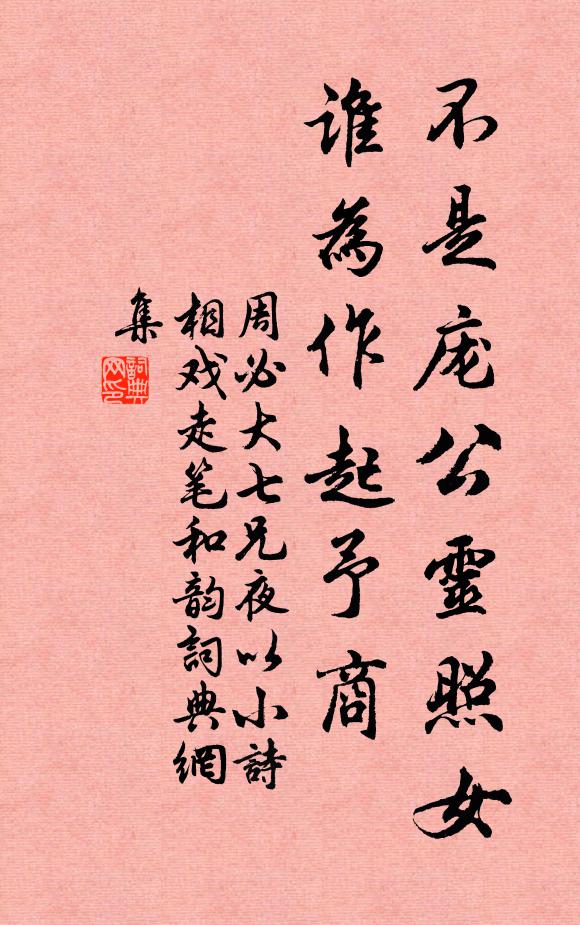 不是庞公靈照女
誰為作起予商
周必大七兄夜以小詩
相戏走笔和韵詞典網
集
詞典
网印